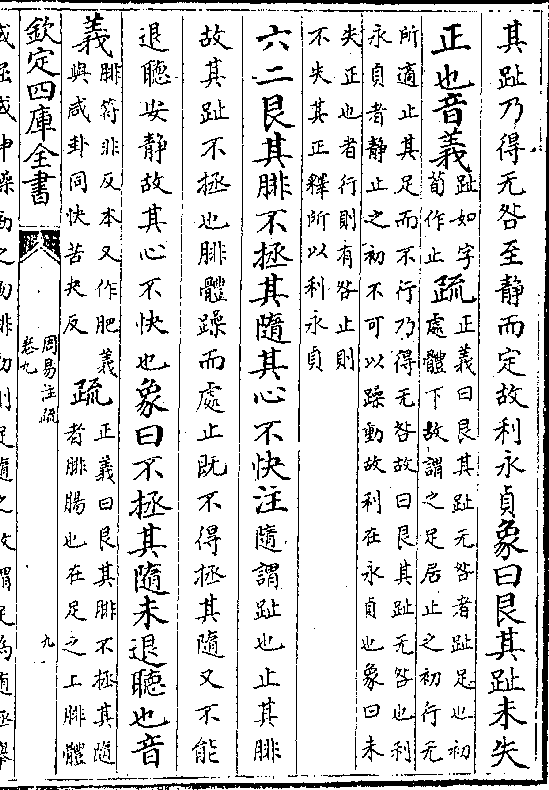 其趾乃得无咎至静而定故利永貞象曰艮其趾未失
正也音義趾如字荀作止疏正義曰艮其趾无咎者趾足也初
處體下故謂之足居止之初行无
所適止其足而不行乃得无咎故曰艮其趾无咎也利
永貞者静止之初不可以躁動故利在永貞也象曰未
失正也者行則有咎止則
不失其正釋所以利永貞
六二艮其腓不拯其隨其心不快注隨謂趾也止其腓
故其趾不拯也腓體躁而處止既不得拯其隨又不能
退聽安静故其心不快也象曰不拯其隨未退聽也音
義腓符非反本又作肥義
與咸卦同快苦夬反疏正義曰艮其腓不拯其隨
者腓腸也在足之上腓體
欽定四庫全書
周易注疏
卷九
九
或屈或伸躁動之物腓動則足隨之故謂足為隨拯舉